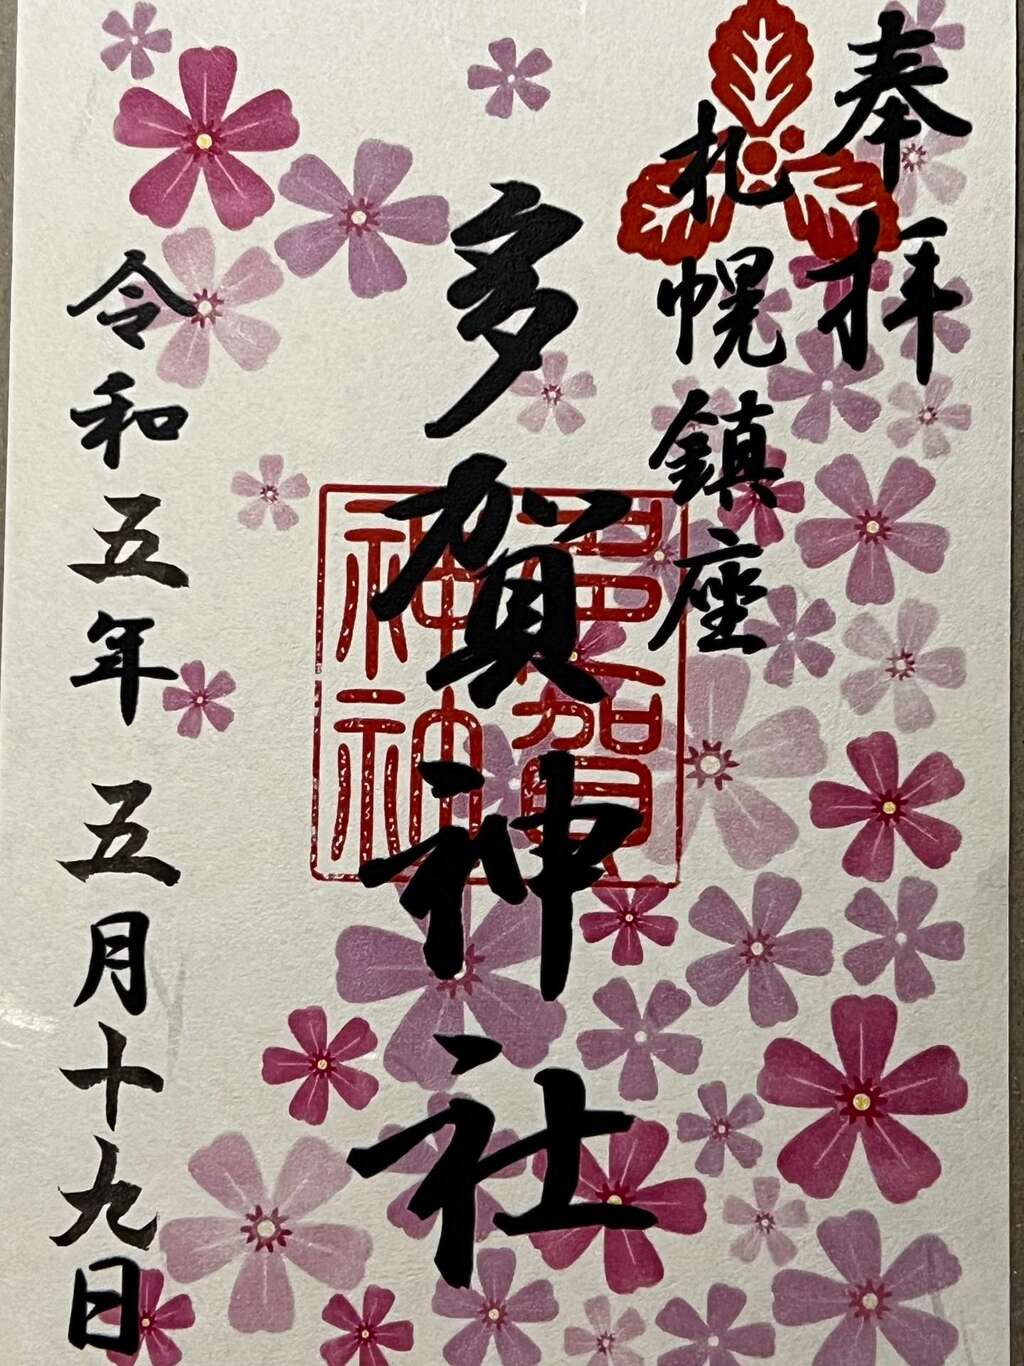 奉拝
札幌鎮座
多賀神社
多賀
神社
令和五年 五月十九日